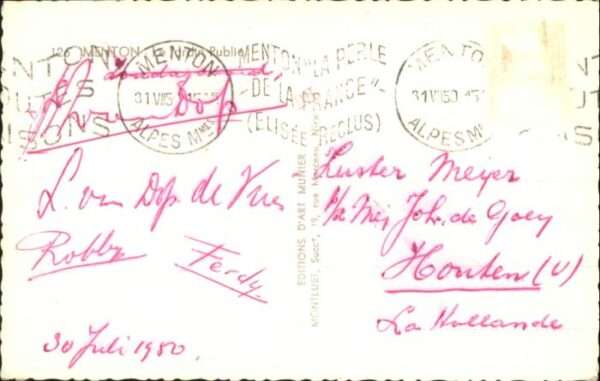 126 MENTON - Le Jardin Public
MENTON
31 VII 50
ALPES Mmes
MENTON "LA PERLE
DE LA FRANCE"
(ELISÉE RECLUS)
MENTON
ALPES M
L. van Dop de Vries
Robby Ferdy
30 Juli 1950.
EDITIONS D'ART MUNIER
MONTLUET, Succr, 19, rue
Zuster Meijer
p/a Mej Joh. de Goey
Houten (U)
La Hollande